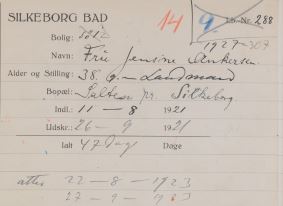 SILKEBORG BAD 14 9. Lb.-Nr. 288
Bolig: 1927-307
Navn: Fru Jensine Ankersen
Alder og Stilling: 38. G.- Landmand
Bopæl: Salten pr. Silkeborg
Indl.: 11 - 8 1921
Udskr.: 26 - 9 1921
Ialt 47 Dage
atter 22 - 8 - 1923
27 - 9 - 1923